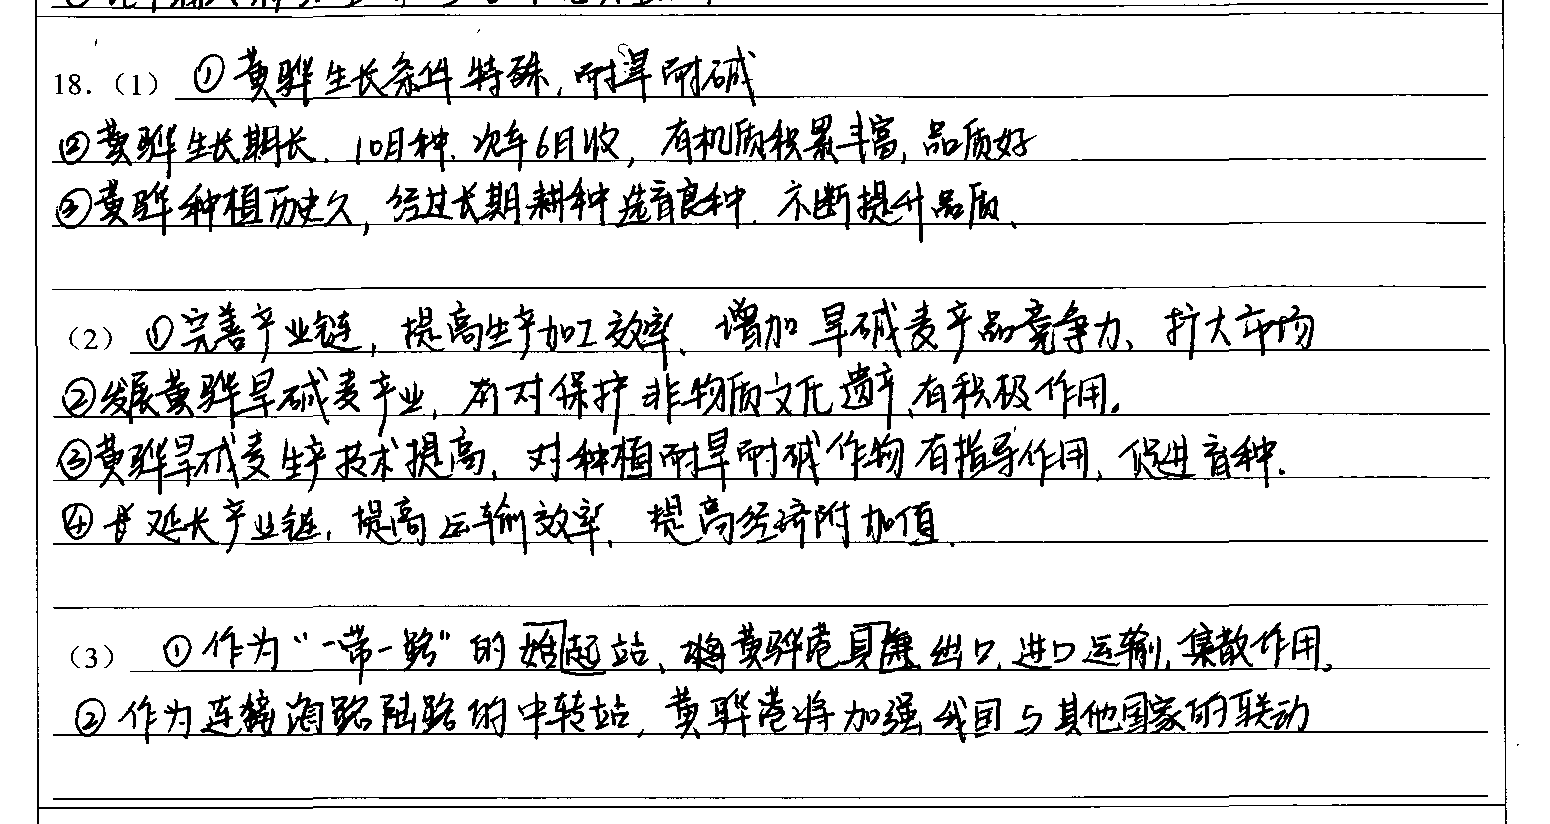 18.(1) ①黄骅生长条件特殊,耐旱耐碱
②黄骅生长期长.10月种.次年6月收,有机质积累丰富,品质好
③黄骅种植历史久,经过长期耕种选育良种.不断提升品质.
(2) ①完善产业链,提高生产加工效率、增加旱碱麦产品竞争力、扩大市场
②发展黄骅旱碱麦产业,对保护非物质文化遗产,有积极作用.
③黄骅旱碱麦生产技术提高,对种植耐旱耐碱作物有指导作用,促进育种.
④延长产业链,提高运输效率,提高经济附加值.
(3) ①作为“一带一路”的始起站、将黄骅港具集出口,进口运输,集散作用,
②作为连接海路陆路的中转站,黄骅港将加强我国与其他国家的联动